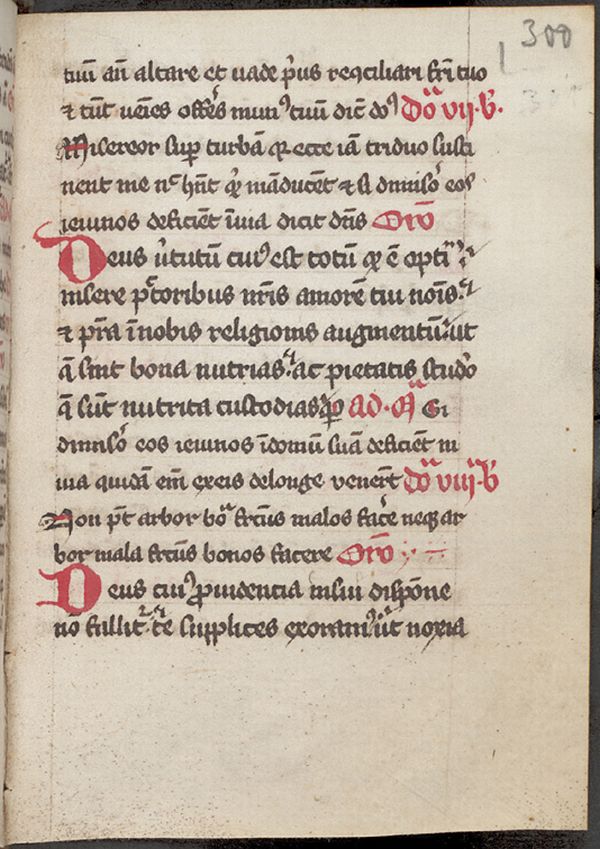 300
tuū añ altare et uade p̓us recↄciliari frī tuo
⁊ tūc ueīes offer̄s mun᷒ tuū dic̄ dō᷒ Dō̄ vij · b̓ ·
Misereor sup̱ turbā qr ecce iā triduo susti
nent me n̄c hn̄t qͥ māducēt ⁊ si dimiso̓ eos
ieiunos deficiēt ī uia dicit dn̄s Orō
Deus u̓tutū cui᷒ est totū qͩ ē optī
insere pc̄toribus nr̄is amorē tui noīs
⁊ pr̄a ī nobis religionis augmentū ut
q̄ sint bona nutrias ac pietatis studo̓
q̄ sūt nutrita custodias p̱ ad · Mᵃ Si
dimiso̓ eos ieiunos ī domū suā deficiēt in
uia quidā em̄ ex eis de longe venerт̄ Dō̄ viij b̓
Non pт̄ arbor boᵃ fr̄cus malos facͤe neqꝫ ar
bor mala fr̄cus bonos facere Orō
Deus cui᷒ ꝓuidencia in sui disp̱ōne
nō fallit᷑ te supplices exoram᷒ ut noxia